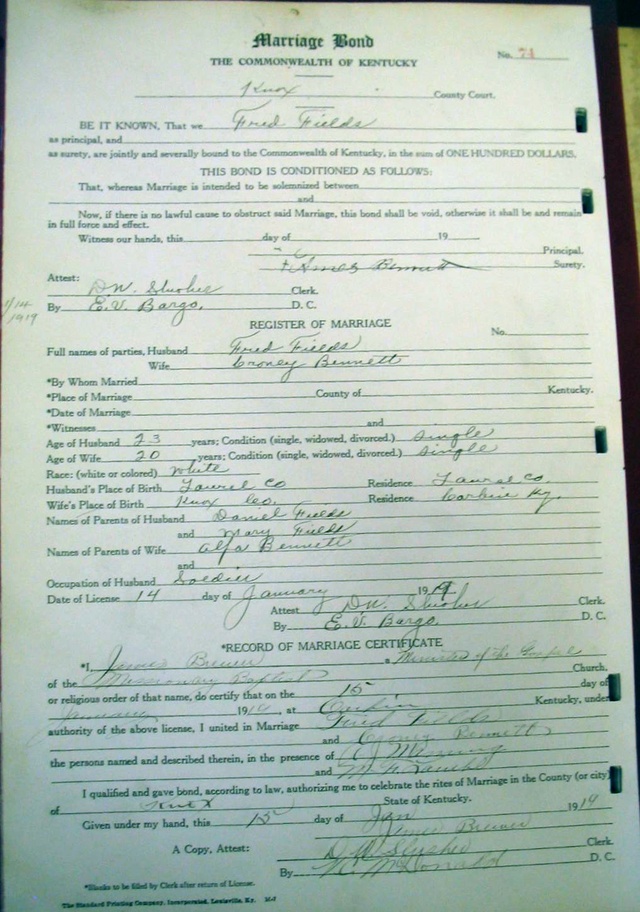 Marriage Bond
THE COMMONWEALTH OF KENTUCKY
No. 74
Knox County Court.
BE IT KNOWN, That we Fred Fields
as principal, and
as surety, are jointly and severally bound to the Commonwealth of Kentucky, in the sum of ONE HUNDRED DOLLARS.
THIS BOND IS CONDITIONED AS FOLLOWS:
That, whereas Marriage is intended to be solemnized between
and
Now, if there is no lawful cause to obstruct said Marriage, this bond shall be void, otherwise it shall be and remain
in full force and effect.
Witness our hands, this day of 19
Principal.
Bennett Surety.
Attest:
D.W. Slusher Clerk.
By E.V. Bargo. D. C.
1/14
1919
REGISTER OF MARRIAGE
No.
Full names of parties, Husband Fred Fields
Wife Croney Bennett
*By Whom Married
*Place of Marriage County of Kentucky.
*Date of Marriage
*Witnesses and
Age of Husband 23 years; Condition (single, widowed, divorced.) single
Age of Wife 20 years; Condition (single, widowed, divorced.) single
Race: (white or colored) white
Husband's Place of Birth Laurel Co Residence Laurel Co.
Wife's Place of Birth Knox Co. Residence Corbin Ky.
Names of Parents of Husband Daniel Fields
and Mary Fields
Names of Parents of Wife Alfa Bennett
and
Occupation of Husband Soldier
Date of License 14 day of January 1919
Attest D.W. Slusher Clerk.
By E.V. Bargo. D. C.
*RECORD OF MARRIAGE CERTIFICATE
*I, James Brewer a Minister of the Gospel
of the Missionary Baptist Church.
or religious order of that name, do certify that on the 15 day of
January 1919, at Corbin Kentucky, under
authority of the above license, I united in Marriage Fred Fields
and Croney Bennett
the persons named and described therein, in the presence of
and
I qualified and gave bond, according to law, authorizing me to celebrate the rites of Marriage in the County (or city)
of Knox State of Kentucky.
Given under my hand, this 15 day of Jan 1919
James Brewer
A Copy, Attest: D.W. Slusher Clerk.
By McDonald D. C.
*Blanks to be filed by Clerk after return of License.
The Standard Printing Company, Incorporated, Louisville, Ky.